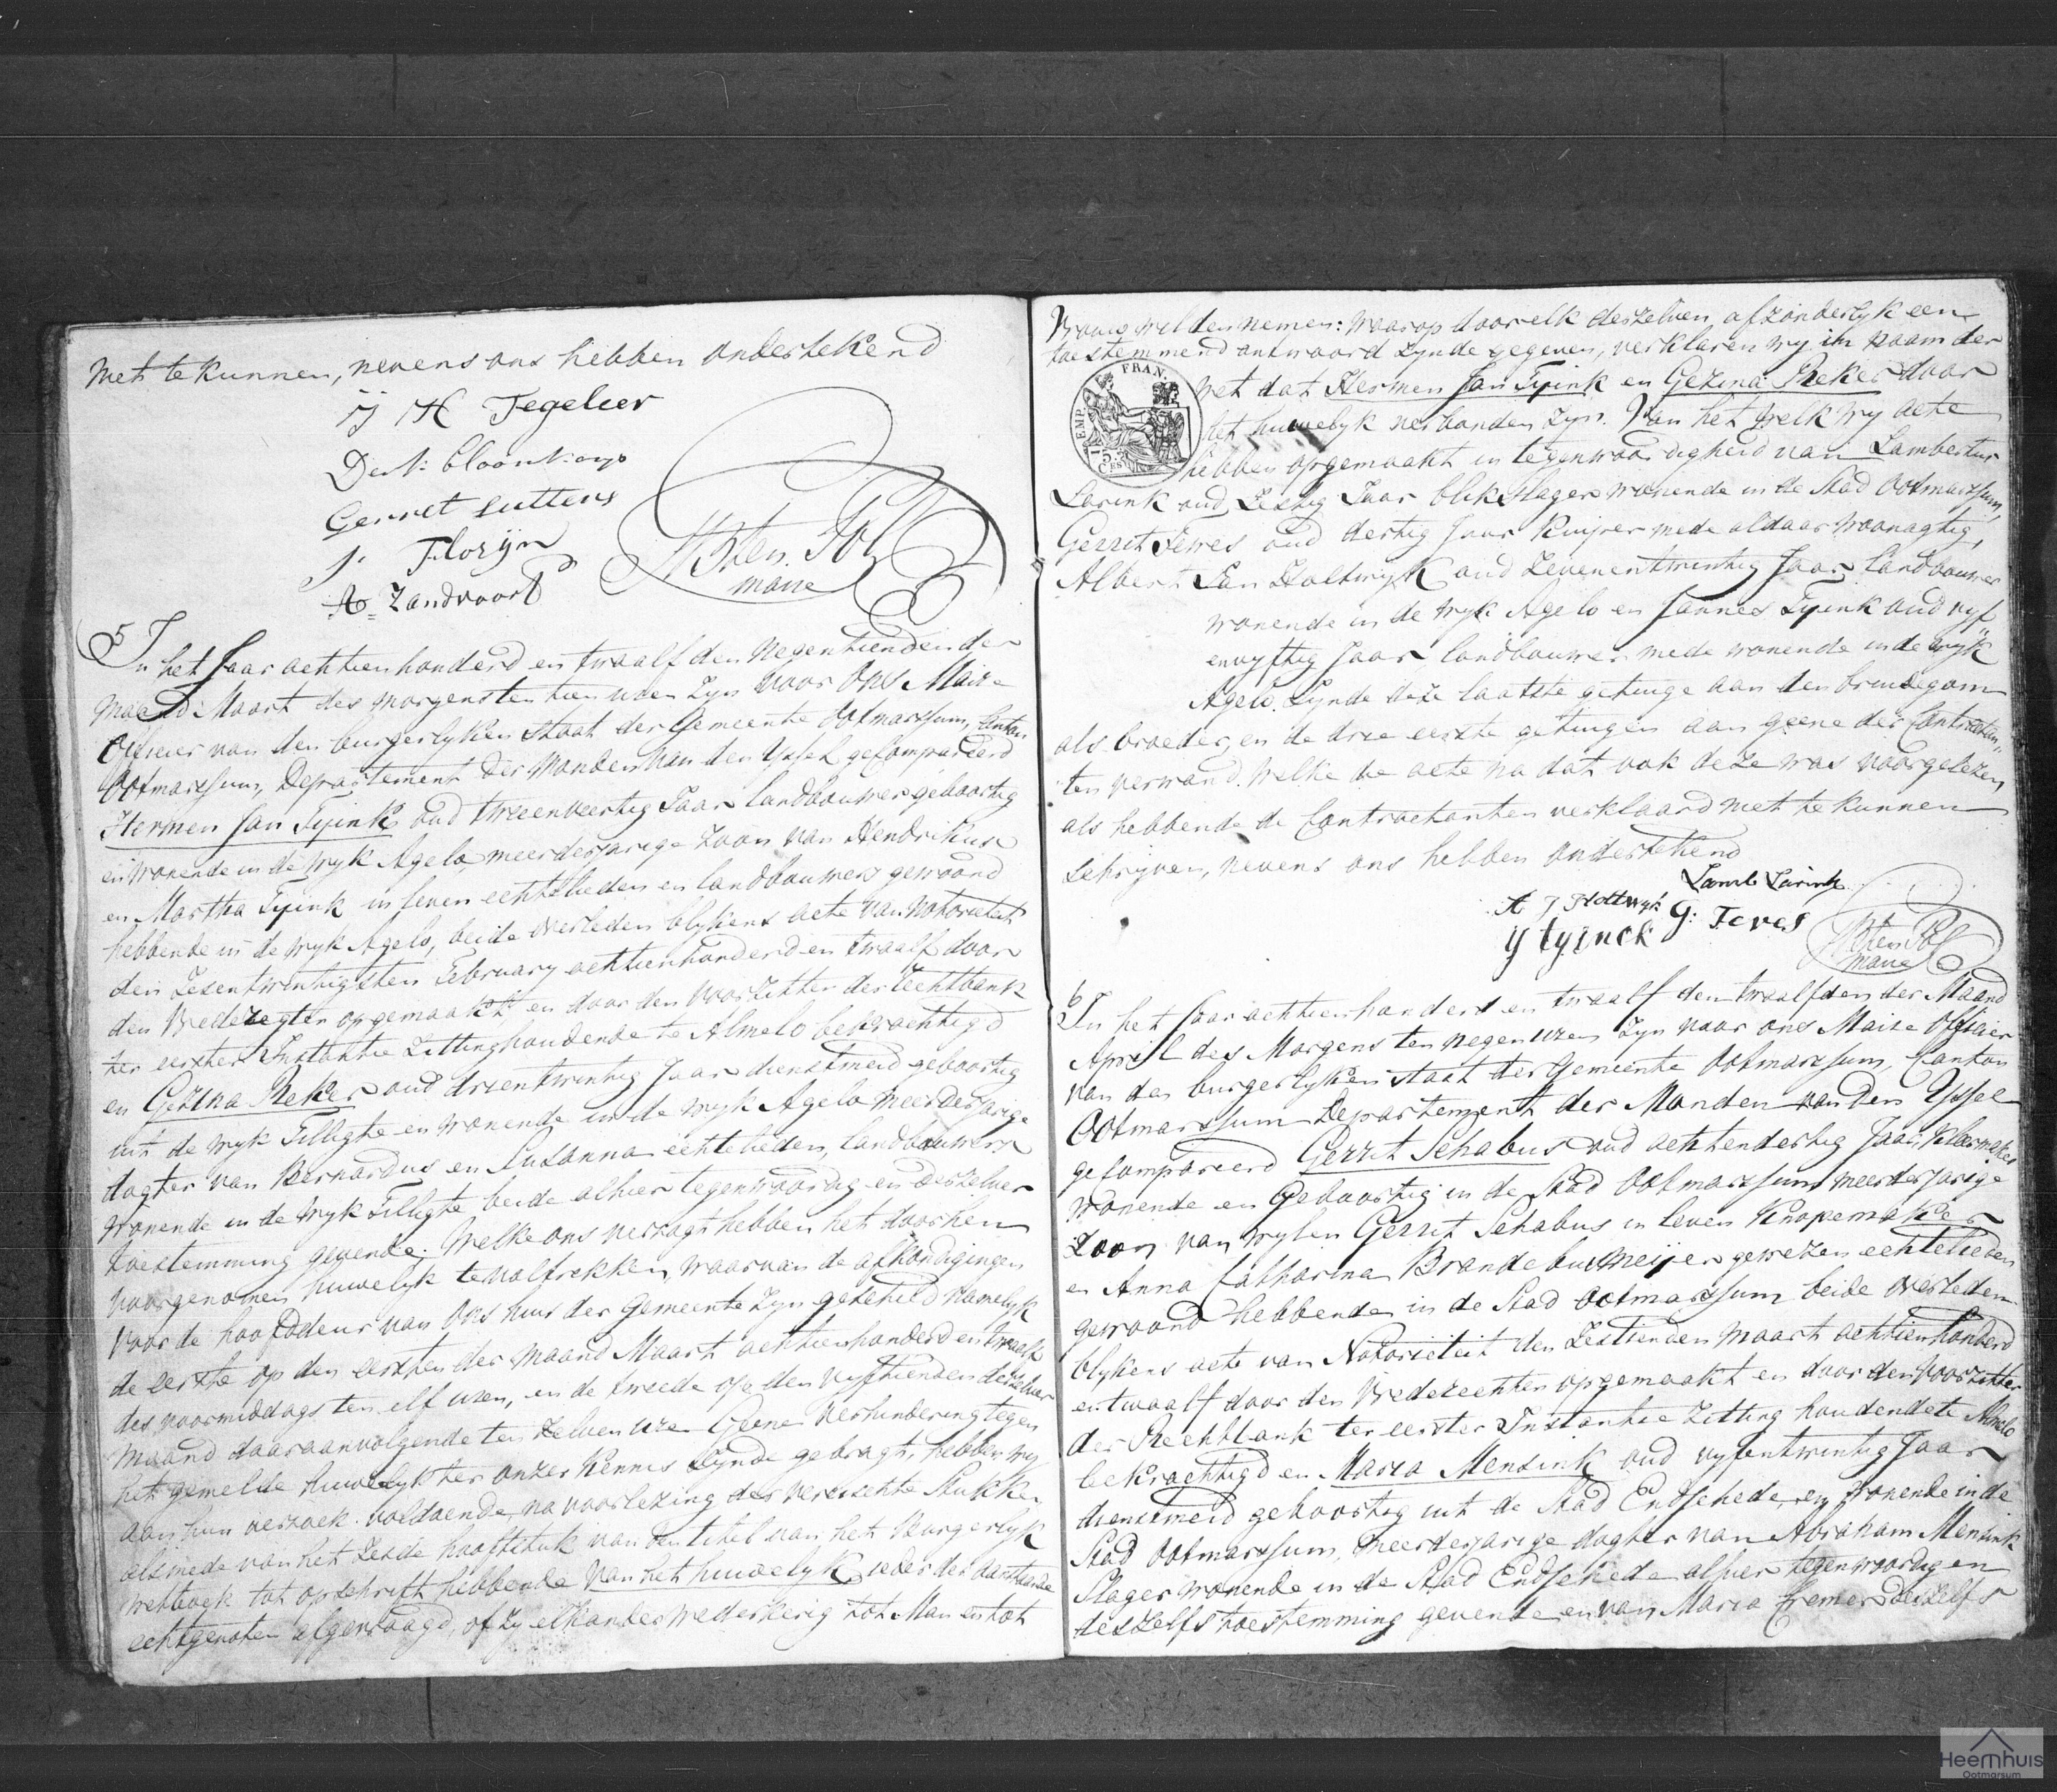 niet te kunnen, nevens ons hebben ondertekend
H Tegeler
Gerret Luttens
J. Florijn
A. Zandvoort
H ten Pol
maire
5 In het Jaar achttienhonderd en twaalf den negentienden der
maand Maart des morgens ten tien uren Zyn voor Ons Maire
Officier van den burgerlyken staat der Gemeente Ootmarssum, Canton
Ootmarssum, Departement der Monden van den Yssel gecompareerd
Hermen Jan Tyink oud tweenveertig Jaar landbouwer geboortig
en wonende in de wyk Agelo, meerderjarige zoon van Hendrikus
en Martha Tyink in leven echtelieden en landbouwers gewoond
hebbende in de wyk Agelo, beide overleden blykens acte van notorieteit
den Zesentwintigsten February achttienhonderd en twaalf door
den Vrederegter opgemaakt, en door den Voorzitter der rechtbank
ter eerster Instantie Zittinghoudende te Almelo bekrachtigd
en Gezina Reker oud drientwintig Jaar dienstmeid geboortig
uit de wyk Tilligte en wonende in de wyk Agelo meerderjarige
dogter van Bernardus en Susanna echtelieden, landbouwers
wonende in de wyk Tilligte beide alhier tegenwoordig en derzelver
toestemming gevende. Welke ons verzogt hebben het door hen
voorgenomen huwelyk te voltrekken, waarvan de afkondigingen
voor de hoofddeur van Ons huis der Gemeente zyn geschied namelyk
de eerste op den eersten der maand Maart achttienhonderd en twaalf
des voormiddags ten elf uren, en de tweede op den vyftienden derzelver
maand daaraanvolgende ten zelven ure Geene verhindering tegen
het gemelde huwelyk ter onzer kennis zynde gebragt, hebben wy
aan hun verzoek voldoende, na voorlezing der vereischte stukken
alsmede van het zesde hoofdstuk van den titel van het Burgerlyk
wetboek tot opschrift hebbende Van het huwelyk, ieder der aanstaande
echtgenoten afgevraagd, of zy elkander wederkerig tot Man en tot
Vrouw wilden nemen: waarop door elk derzelven afzonderlyk een
toestemmend antwoord zynde gegeven, verklaren wy in naam der
EMP. FRAN.
wet dat Hermen Jan Tyink en Gezina Reker door
het huwelyk verbonden zyn. Van het welk wy acte
hebben opgemaakt in tegenwoordigheid van Lambertus
Larink oud Zestig Jaar blikslager wonende in de Stad Ootmarssum,
Gerrit Tewes oud dertig Jaar Kuiper mede aldaar woonagtig,
Albert Jan Holtwyk oud Zevenentwintig Jaar landbouwer
wonende in de wyk Agelo en Jannes Tyink oud vyf
envyftig Jaar landbouwer mede wonende in de wyk
Agelo, Zynde deze laatste getuige aan den bruidegom
als broeder, en de drie eerste getuigen aan geene der Contractan-
ten verwand. welke de acte na dat ook deze was voorgelezen,
als hebbende de Contractanten verklaard niet te kunnen
schryven, nevens ons hebben ondertekend
Lamb Larink
A J Holtwyk G: Teves
J tyinck
H ten Pol
maire
6 In het Jaar achttienhonderd en twaalf den twaalfden der Maand
April des Morgens ten negen uren Zyn voor ons Maire Officier
van den burgerlyken staat der Gemeente Ootmarssum, Canton
Ootmarssum Departement der Monden van den Yssel
gecompareerd Gerrit Schabus oud achtendertig Jaar, Kleermaker
wonende en Geboortig in de Stad Ootmarssum meerderjarige
Zoon van wylen Gerrit Schabus in leven Knopemaker
en Anna Catharina Brandebu Meijer gewezen echtelieden
gewoond hebbende in de Stad Ootmarssum beide overleden
blykens acte van Notorieteit den Zestienden maart achttienhonderd
entwaalf door den Vrederechter opgemaakt en door den Voorzitter
der Rechtbank ter eerster Instantie Zitting houdende te Almelo
bekrachtigd en Maria Mensink oud vyfentwintig Jaar
dienstmeid geboortig uit de Stad Endschede, en wonende in de
Stad Ootmarssum, meerderjarige dogter van Abraham Mensink
Slager wonende in de Stad Endschede alhier tegenwoordig en
deszelfs toestemming gevende en van Maria Cremer deszelfs
Heemhuis
Ootmarsum